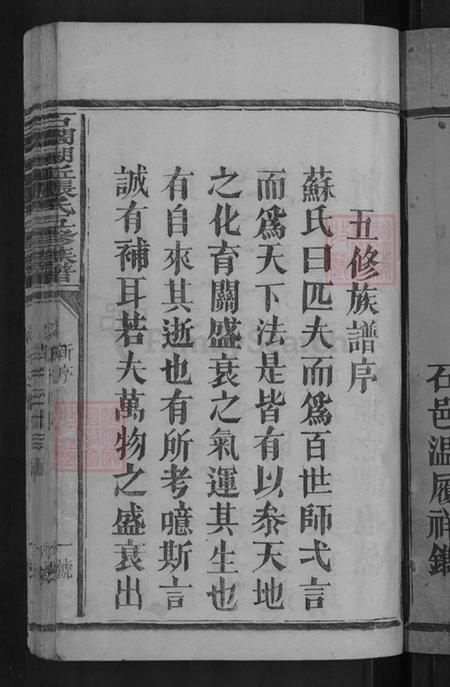 石邑温履祥鐫
五修族譜序
蘇氏曰匹夫而爲百世師弌言
而爲天下法是皆有以叅天地
之化育關盛衰之氣運其生也
有自來其逝也有所考噫斯言
誠有補耳若夫萬物之盛衰出
張氏五修族譜
新序
一號